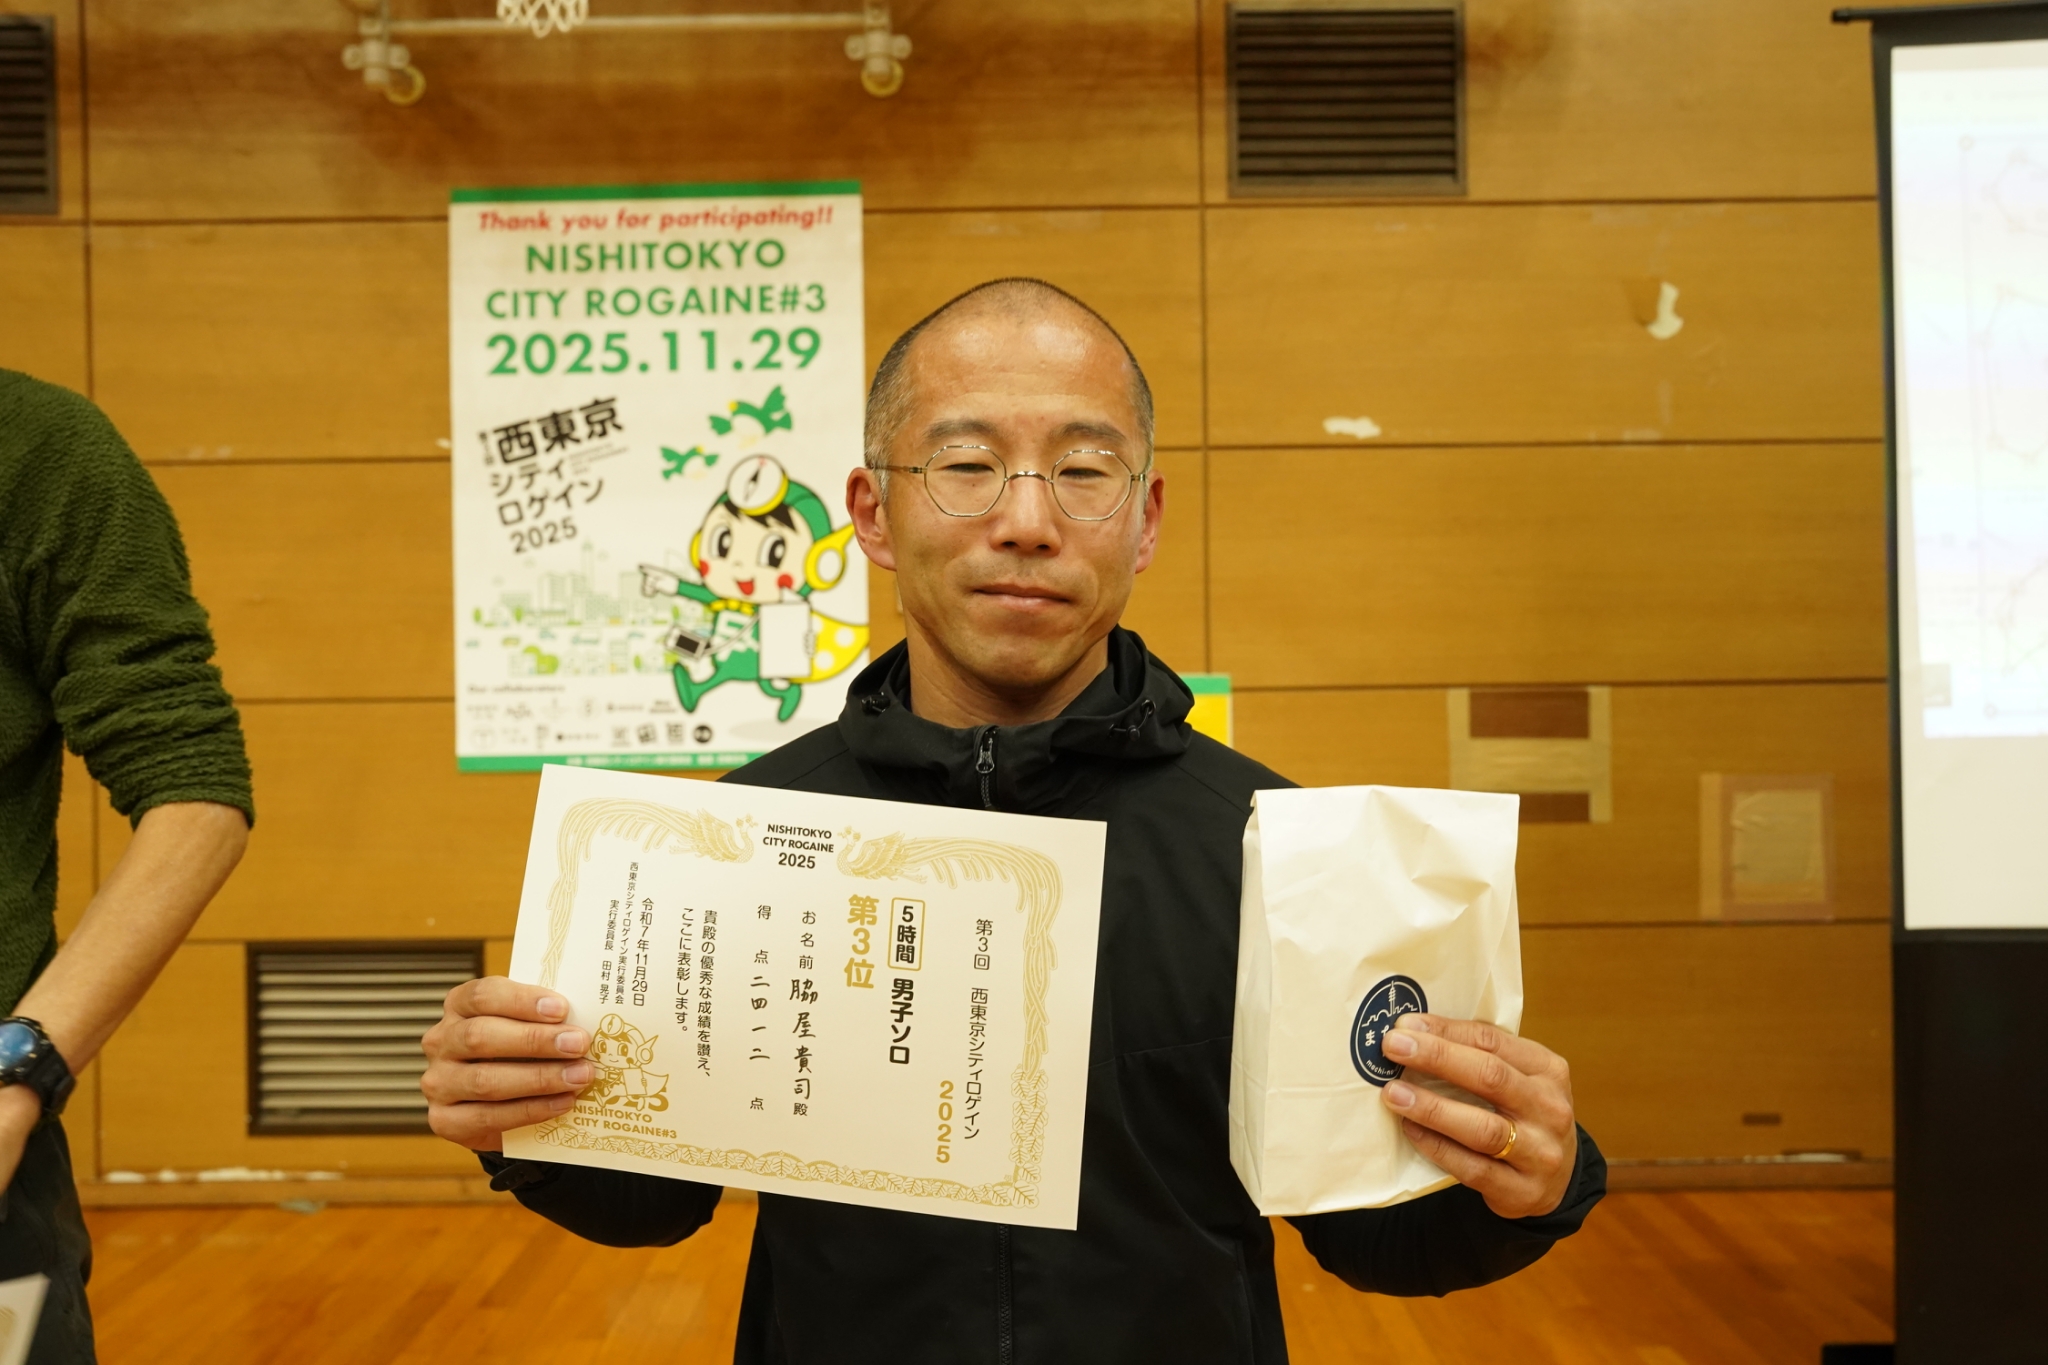 Thank you for participating!!
NISHITOKYO
CITY ROGAINE#3
2025.11.29
西東京
シティ
ロゲイン
2025
Our collaborators
NISHITOKYO
CITY ROGAINE
2025
第3回 西東京シティロゲイン
2025
5時間 男子ソロ
第3位
お名前 脇屋貴司 殿
得点 二四一二 点
貴殿の優秀な成績を讃え、
ここに表彰します。
令和7年11月29日
西東京シティロゲイン実行委員会
実行委員長 田村 晃子
NISHITOKYO
CITY ROGAINE#3
ま
machi-n